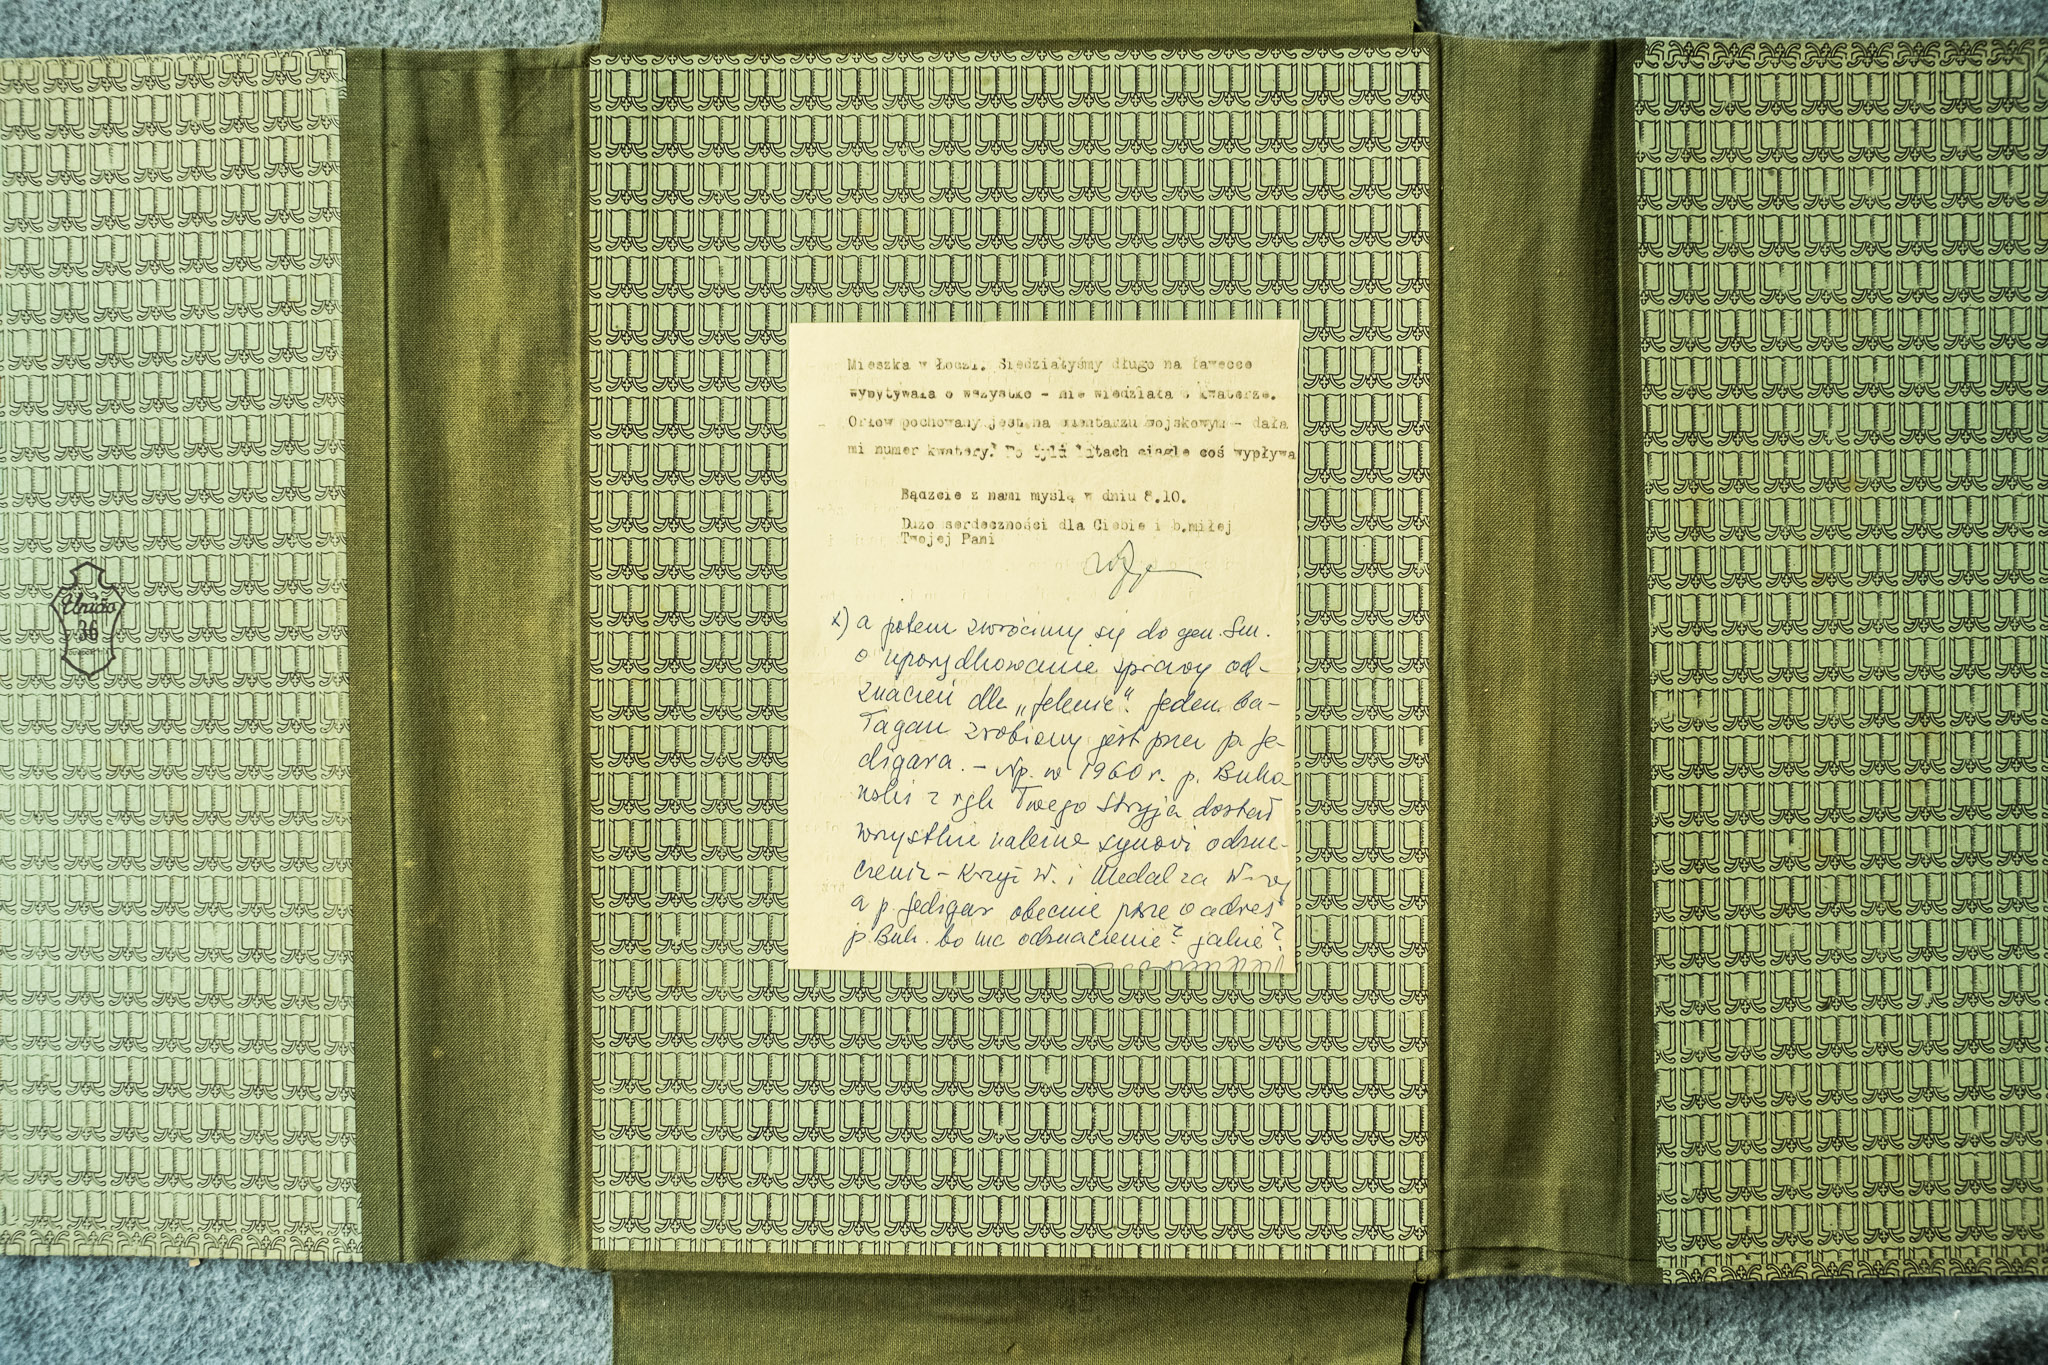 Mieszka w Łodzi. Siedziałyśmy długo na ławecce
wypytywała o wszystko - nie wiedziała o kwaterze.
Orłow pochowany jest na cmentarzu wojskowym - dała
mi numer kwatery. Po tylu latach ciągle coś wypływa
Bądzcie z nami myślą w dniu 8.10.
Dużo serdeczności dla Ciebie i b.miłej
Twojej Pani
x) a potem zwrócimy się do gen. Sm.
o uporządkowanie sprawy od-
znaczeń dla „Jelenie". Jeden ba-
łagan zrobiony jest przez p. Je-
digara. - Np. w 1960 r. p. Buko
wski z Twego Stryja dostał
wszystkie należne synowi odzna-
czenia - Krzyż W. i Medal za
a p. Jedigar obecnie pisze o adres
p. Buk. bo ma odznaczenie? jakie?
Unido
36